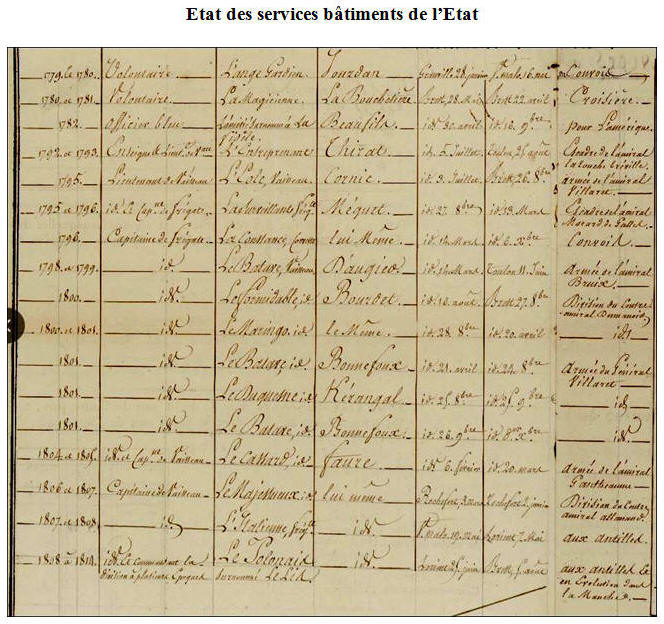 Etat des services bâtiments de l'Etat
1779. et 1780. Volontaire L'ange Gardien Jourdan Granville 28 janvier St malo 16. mai Convoi
1780. et 1781. Volontaire. La Magicienne. La Bouchetiere. Brest, 28. Mai Brest 22. avril Croisière.
1782. officier bleu. Beaufils. id. 30. avril id. 16. 9bre pour L'amérique.
1792. et 1793. Enseigne & Lieut. de Vau L'Entreprenant Thirat id. 5. Juillet. Toulon, 25. août Escadre de l'amiral
Latouche tréville
1795. Lieutenant de Vaisseau Le Cole, Vaisseau Cornic id. 9. Juillet. Brest, 26. 8bre armée de l'amiral
Villaret
1795 et 1796. id. & Capne de frégate La Surveillante frigte Méquet id. 27. 8bre id. 13. Mars Escadre de l'amiral
Morard de Galles
1796. Capitaine de frégate La Constance, Corvette lui Même id. 14. Mars id. 6. Xbre Convoi.
1798. et 1799. id. Le Batave, Vaisseau D'augier id. 14. Mars Toulon 11. Juin Armée de l'amiral
Bruix
1800. id. Le formidable, id. Bourdet id. 10. août, Brest 27. 8bre Division du Contre
amiral Dumanoir
1800. et 1801. id. Le Maringo, id. le Même. id. 28. 8bre id. 20. avril id.
1801. id. Le Batave, id. Bonnefoux id. 21. avril id. 24. 8bre Armée du Général
Villaret
1801. id. Le Duquesne, id. Kérangal id. 25. 8bre id. 25. 9bre id.
1801. id. Le Batave, id. Bonnefoux. id. 26. 9bre id. Xbre id.
1804 et 1805. id. et Capne de Vaisseau Le Cassard, id. faure id. 6. février id. 20. mars Armée de l'amiral
Gantheaume
1806 et 1807. Capitaine de Vaisseau Le Majestueux, id. lui même Rochefort, Rochefort 2. Division du Contre
amiral allemand.
1807. et 1808. id. L'Italienne, frigte id. St malo, 19. Mai Lorient, 7. Mai aux antilles.
1808 à 1814. id. et commandant la Le Polonais id. Lorient, juin Brest, août aux antilles &
division à plusieurs Epoques surnommé Le Lis en Evolution dans
La Manche.